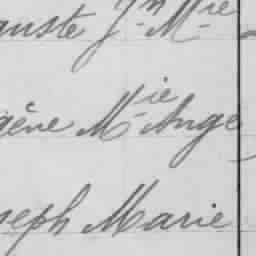 guste Jn Mie
gène Mie Ange
seph Marie